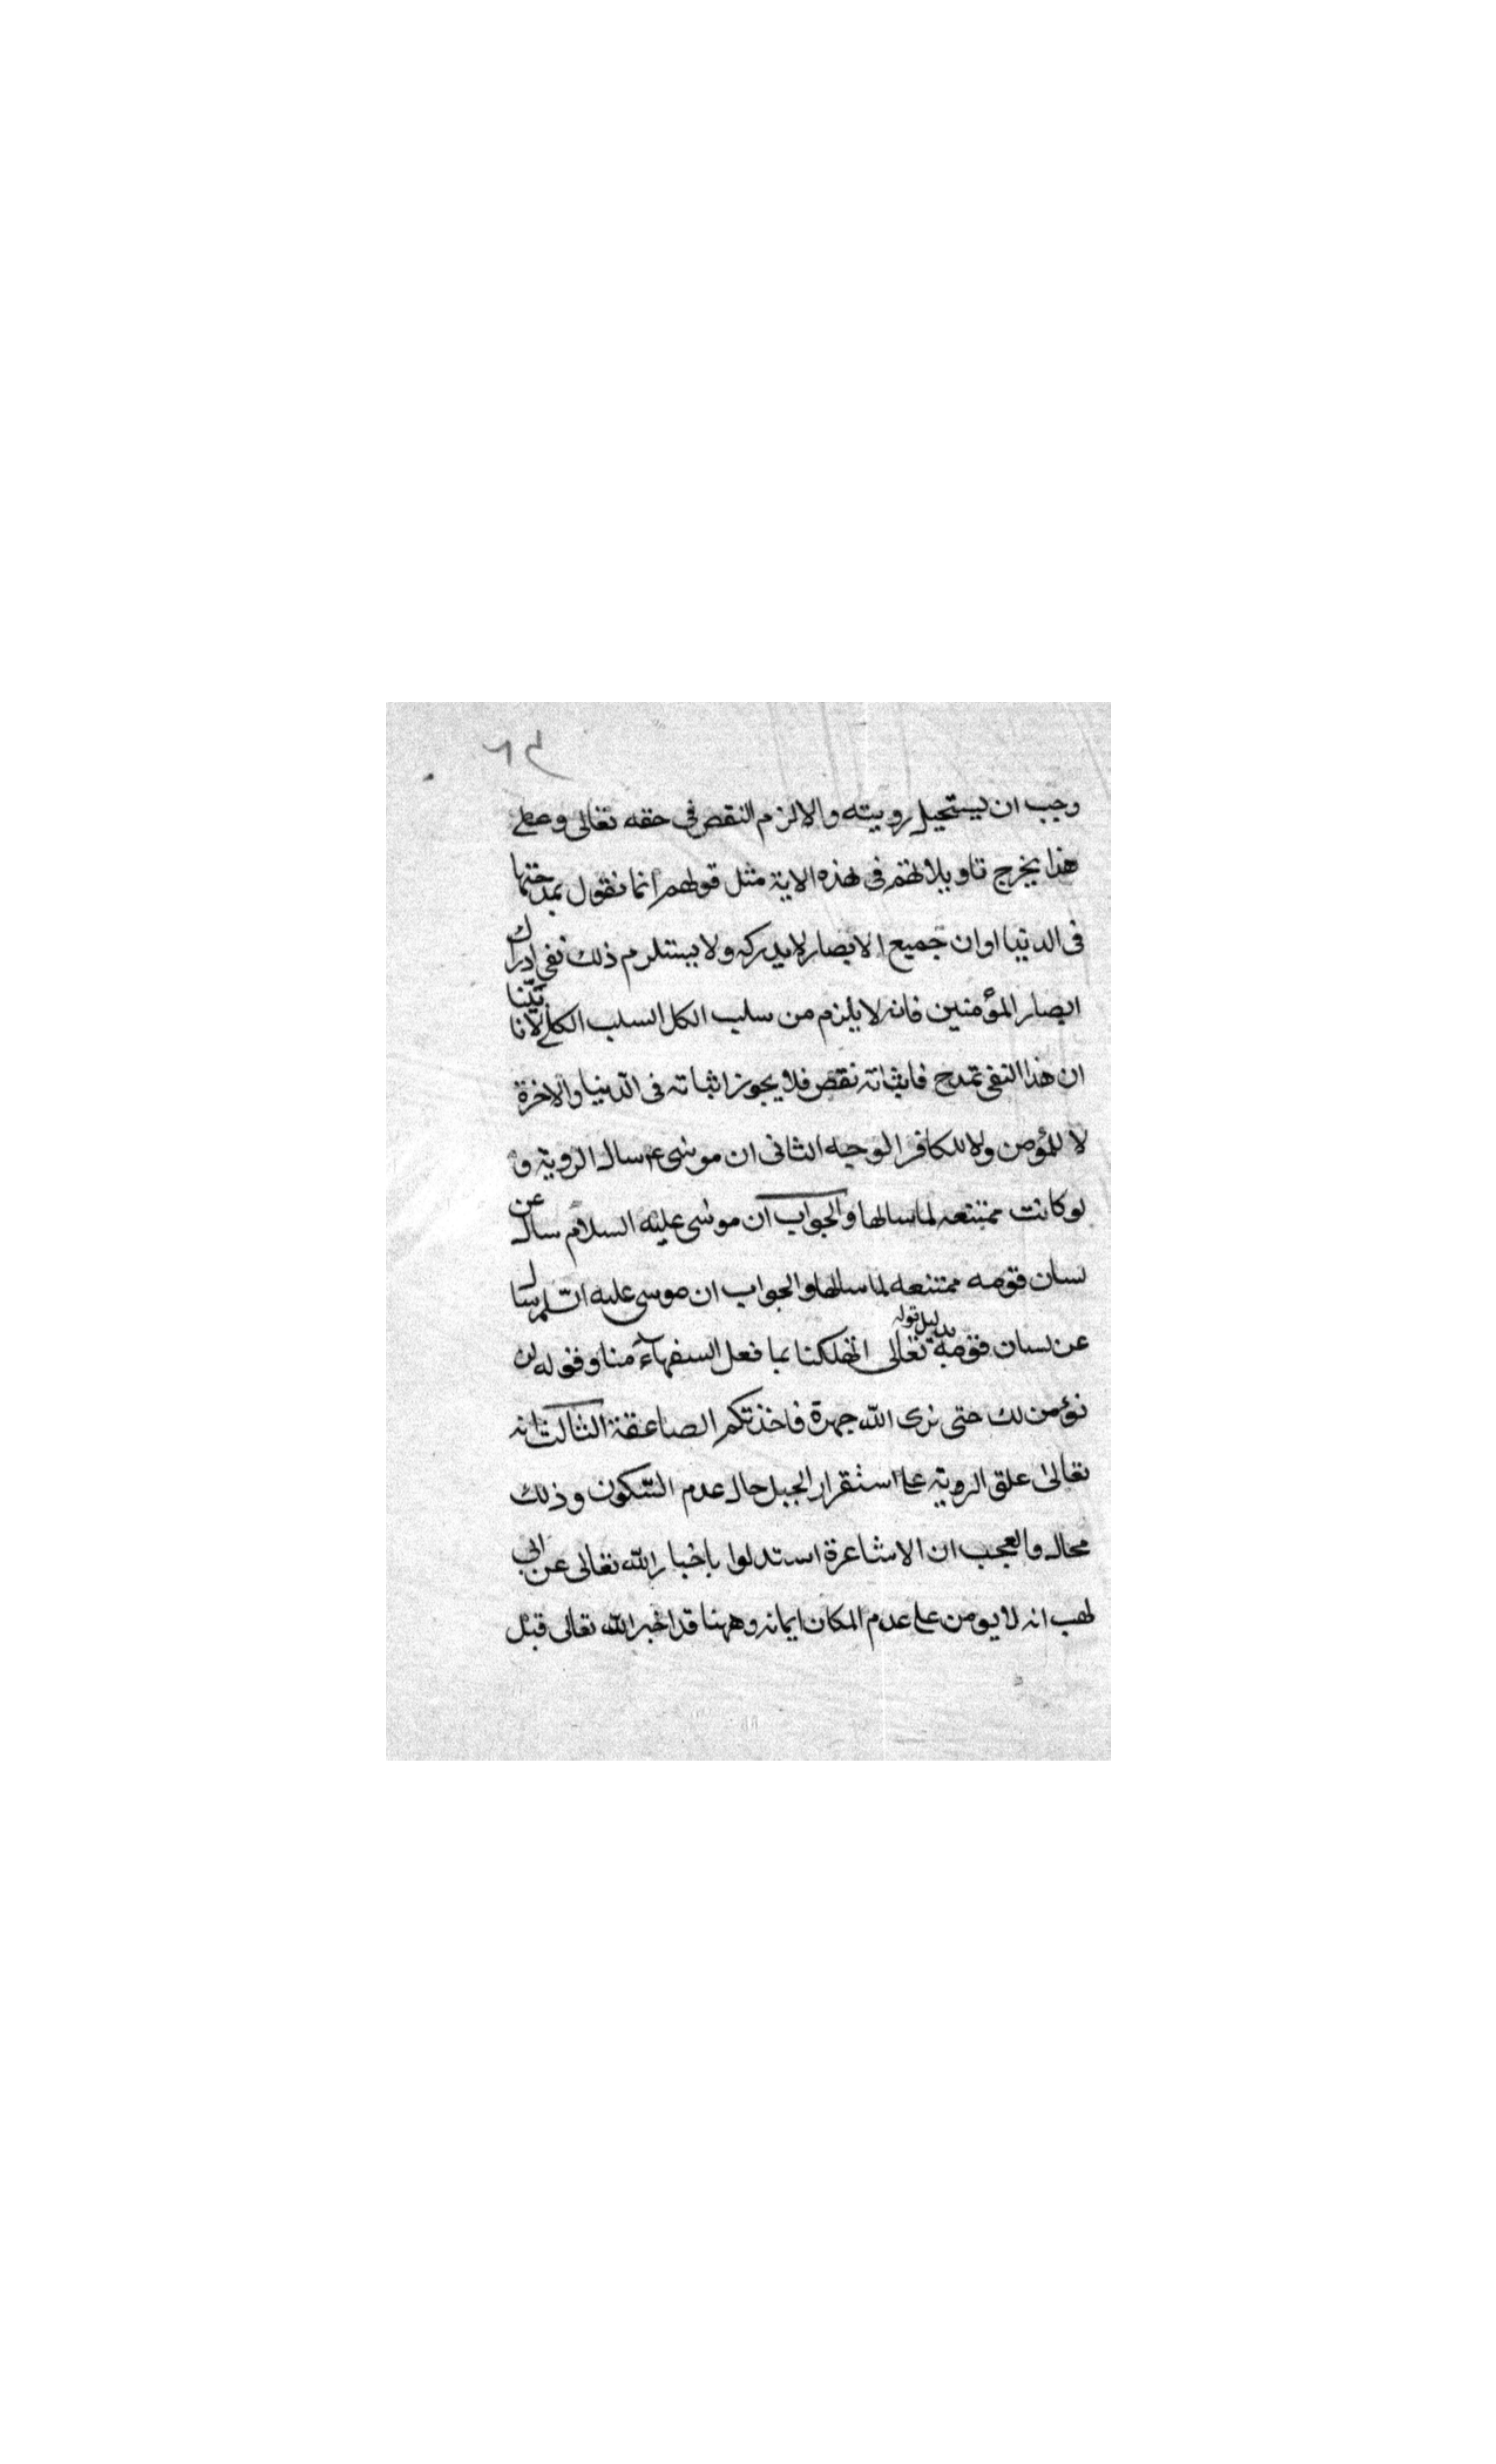 وجب ان يستحيل رويته والا لزم النقص فى حقه تعالى وعلى
هذا يخرج تاويلاتهم فى هذه الاية مثل قولهم انما نقول بمدحتها
فى الدنيا او ان جميع الابصار لا يدركه ولا يستلزم ذلك نفى ادراك
ابصار المؤمنين فانه لا يلزم من سلب الكل السلب الكلى لانا بيّنا
ان هذا النفى تمدح فاثباته نقص فلا يجوز اثباته فى الدنيا والاخرة
لا للمؤمن ولا للكافر الوجه الثانى ان موسى ع سال الروية و
لو كانت ممتنعه لما سالها والجواب ان موسى عليه السلام سال عن
لسان قومه ممتنعه لما سالها والجواب ان موسى عليه السلم سال
عن لسان قومه بدليل قوله تعالى اتهلكنا بما فعل السفهاء منا وقوله لن
نؤمن لك حتى نرى الله جهرة فاخذتكم الصاعقة الثالث انه
تعالى علق الروية على استقرار الجبل حال عدم السّكون وذلك
محال والعجب ان الاشاعرة استدلوا باخبار الله تعالى عن ابى
لهب انه لا يومن على عدم المكان ايمانه وههنا قد اخبر الله تعالى قبل